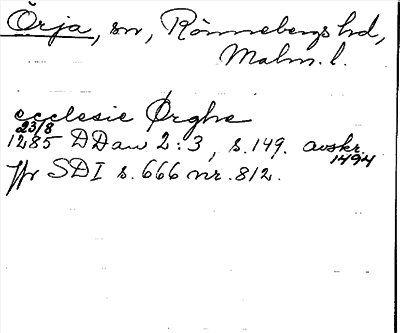 Örja, sn, Rönnebergs hd,
Malm. l.
ecclesie Ørghe
23/8
1285 DDan 2:3, s. 149. avskr.
1494
Jfr SDI s. 666 nr. 812.